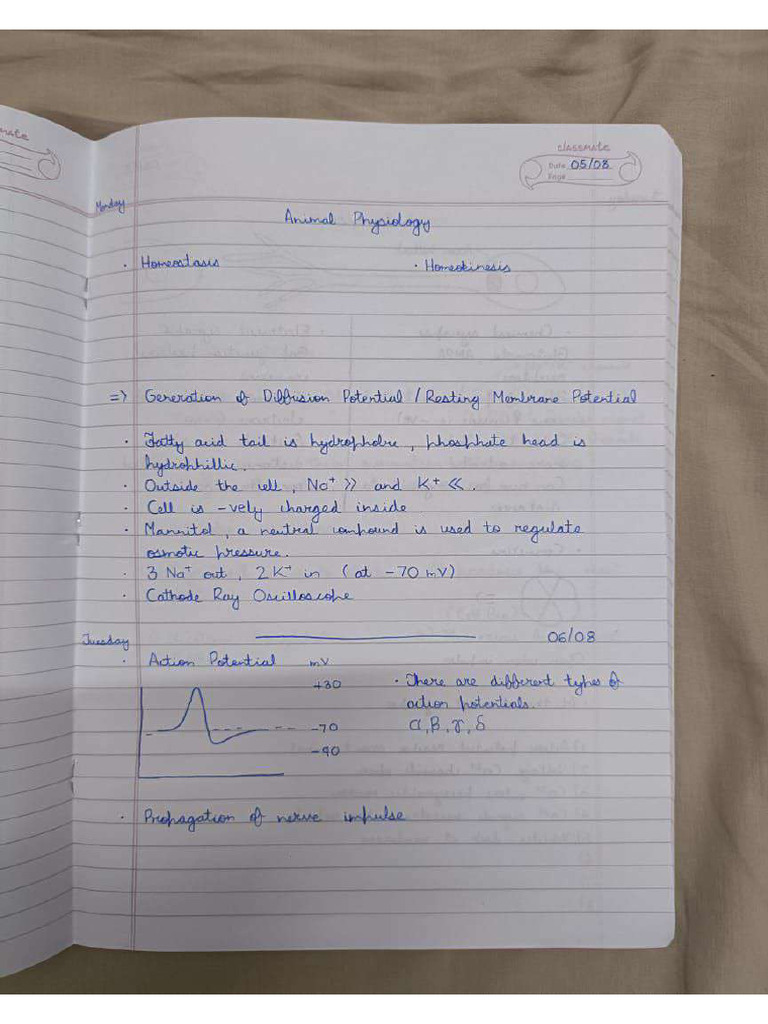 mate
classmate
Date 05/08
Page
Monday
Animal Physiology
· Homeostasis · Homeokinesis
=> Generation of Diffusion Potential / Resting Membrane Potential
· Fatty acid tail is hydrophobic, phosphate head is
hydrophillic.
· Outside the cell, Na⁺ >> and K⁺ <<.
· Cell is -vely charged inside
· Mannitol, a neutral compound is used to regulate
osmotic pressure.
· 3 Na⁺ out, 2 K⁺ in (at -70 mV)
· Cathode Ray Oscilloscope
Tuesday 06/08
· Action Potential mV
+30
-70
-90
· There are different types of
action potentials.
α, β, γ, δ
· Propagation of nerve impulse